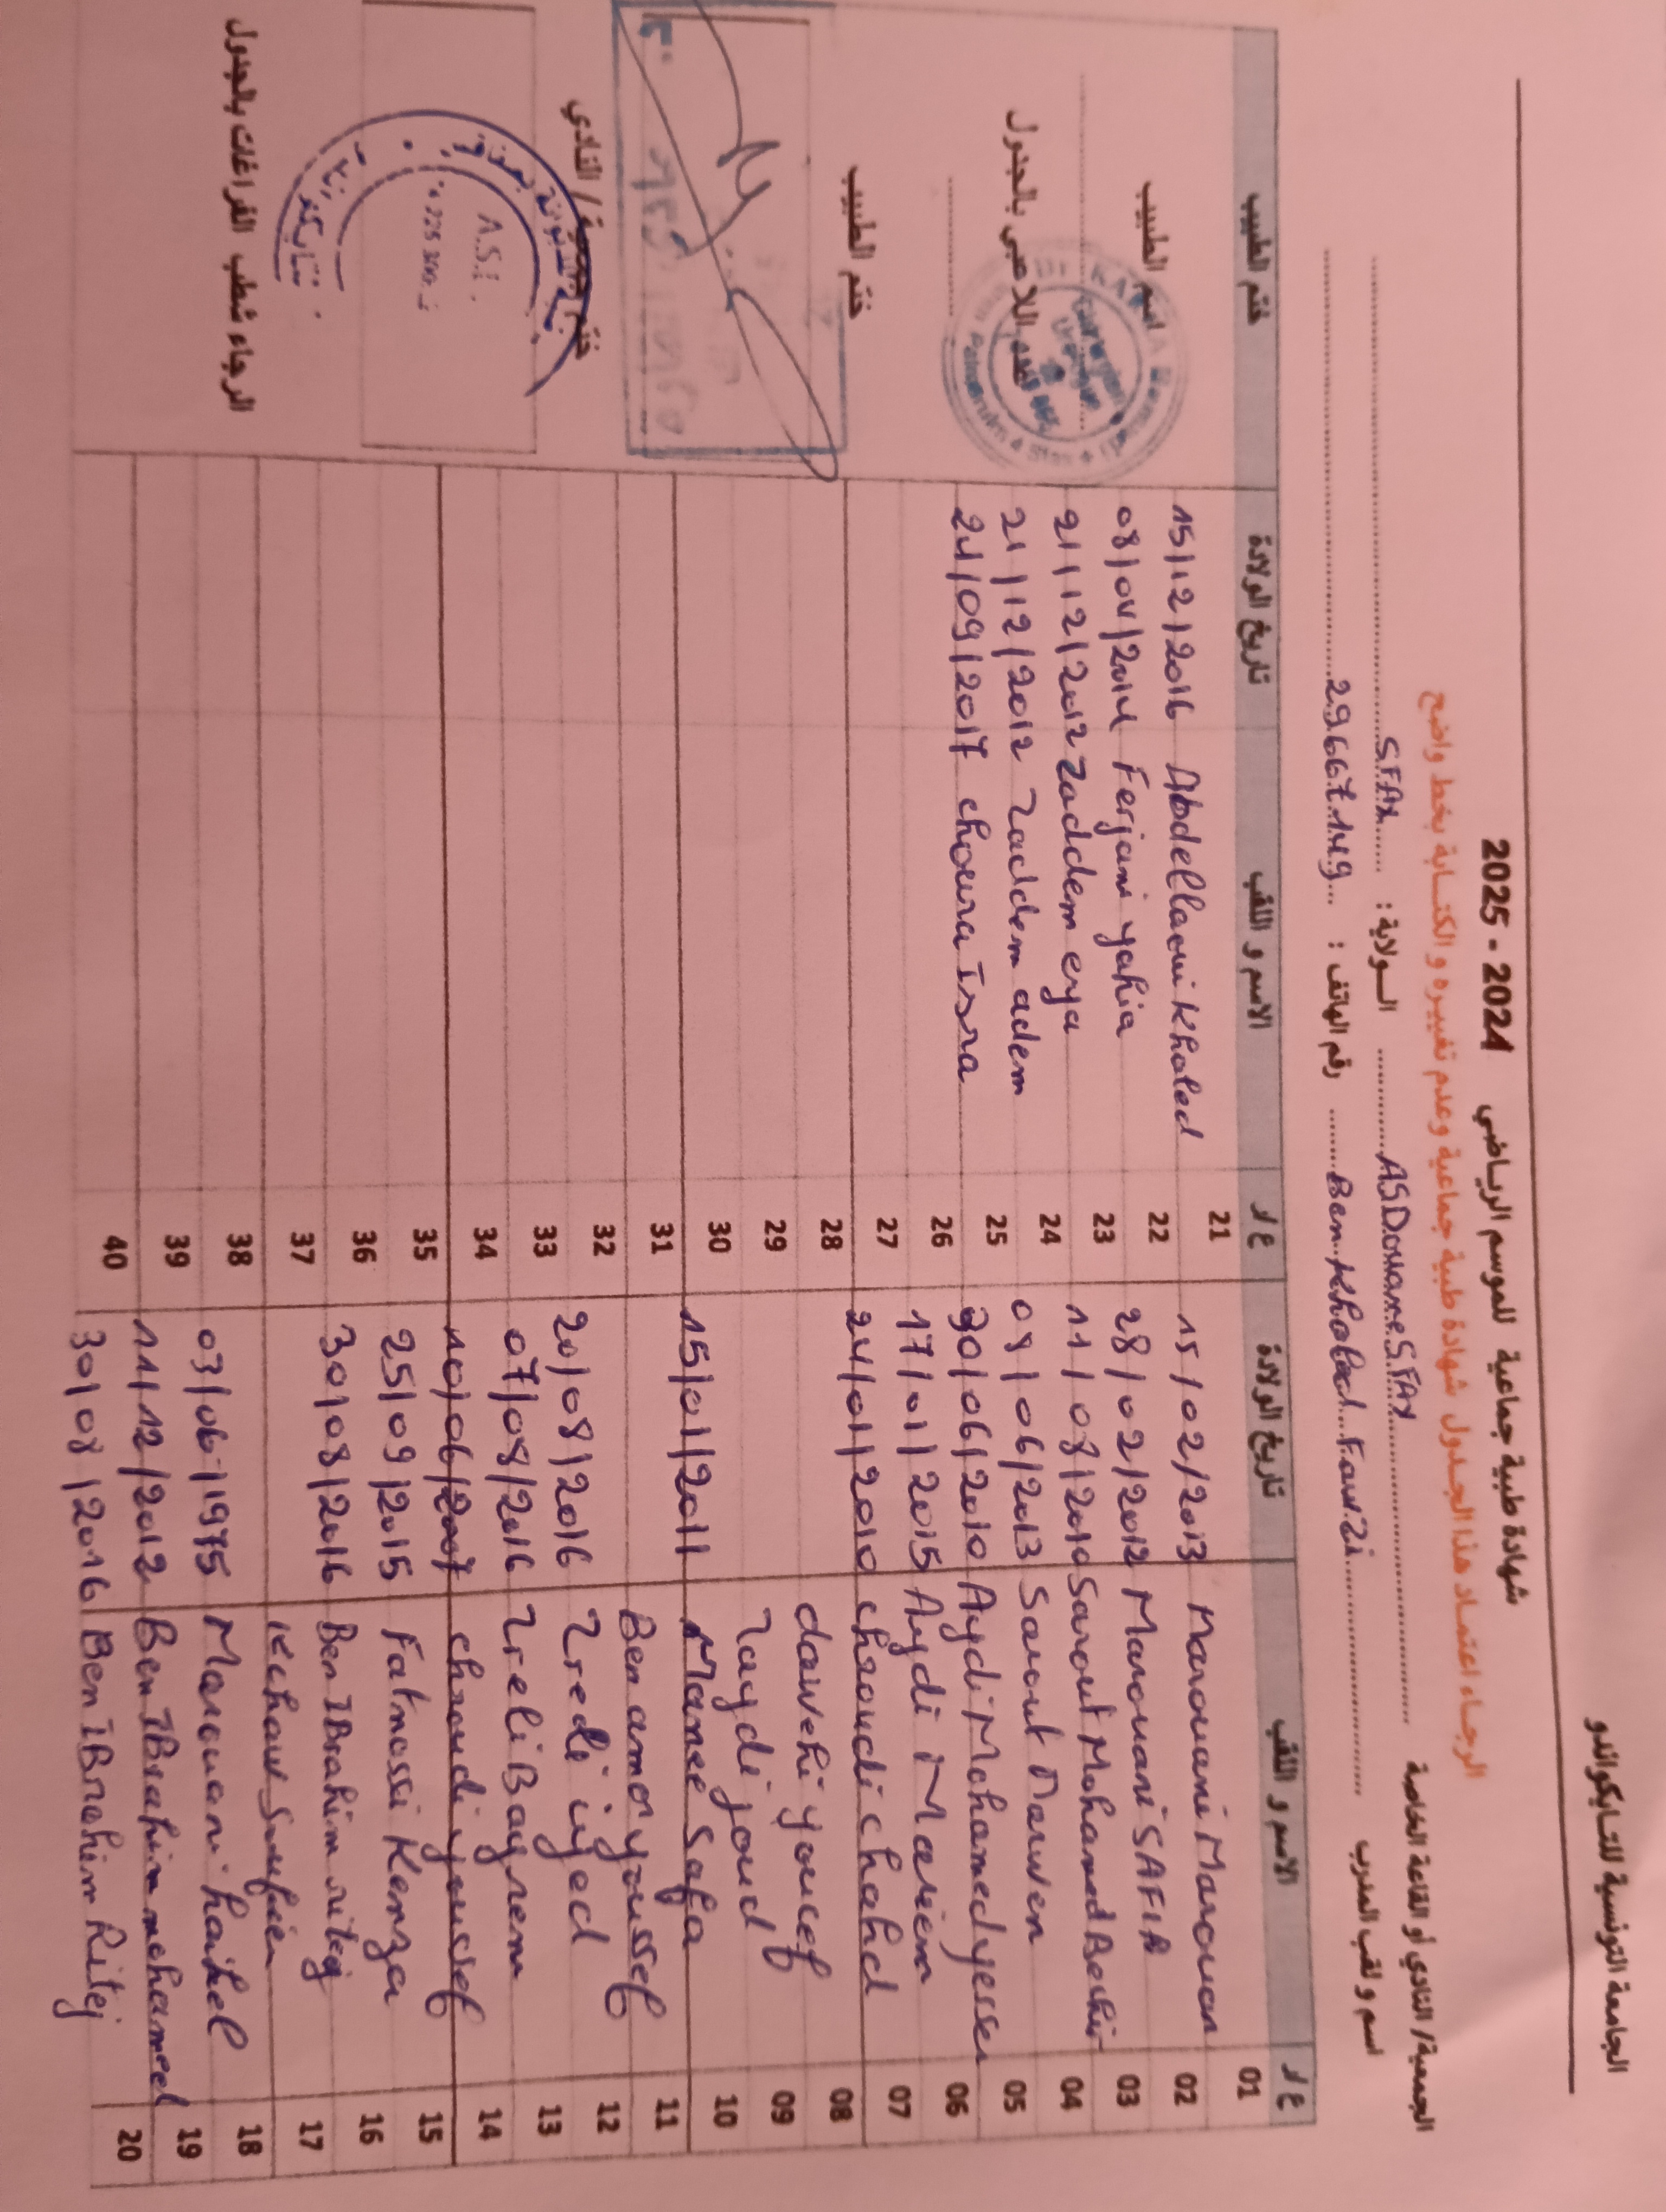 الجامعة التونسية للتايكواندو
شهادة طبية جماعية للموسم الرياضي 2024 - 2025
الرجاء اعتماد هذا الجدول شهادة طبية جماعية وعدم تغييره و الكتابة بخط واضح
الجمعية/ النادي أو القاعة الخاصة ASDouane SFAX الولاية : SFAX
اسم و لقب المدرب Ben Khaled Fawzi رقم الهاتف : 29667149
ع ر الاسم و اللقب تاريخ الولادة ع ر الاسم و اللقب تاريخ الولادة ختم الطبيب
01 Marouani Marouan 15/02/2013 21 Abdellaoui Khaled 15/12/2016
02 Marouani SAFIA 28/02/2012 22 Ferjani yahia 08/04/2014
03 Sarout Mohamed Bechir 11/08/2010 23 Zaddem eya 21/12/2012
04 Sarout Marwen 08/06/2013 24 Zaddem adem 21/12/2012
05 Aydi Mohamed yesser 30/06/2010 25 choura Isra 24/09/2017
06 Aydi Mariem 17/01/2015 26
07 chaoudi chahd 24/01/2010 27
08 dawehi youcef 28
09 Zaydi joud 29
10 Manee Safa 15/01/2011 30
11 Ben amor youssef 31
12 Zreli iyed 20/08/2016 32
13 Zreli Bayrem 07/08/2016 33
14 chaoudi youssef 10/06/2007 34
15 Fatnassi Kenza 25/09/2015 35
16 Ben IBrahim ritej 30/08/2016 36
17 Kchaw Soufien 37
18 Marouani haikel 03/06/1975 38
19 Ben IBrahim mohamed 11/12/2012 39
20 Ben IBrahim Ritej 30/08/2016 40
اسم الطبيب
عدد اللاعبي بالجدول
ختم الطبيب
ختم الجمعية/ النادي
A.S.
الرجاء شطب الفراغات بالجدول